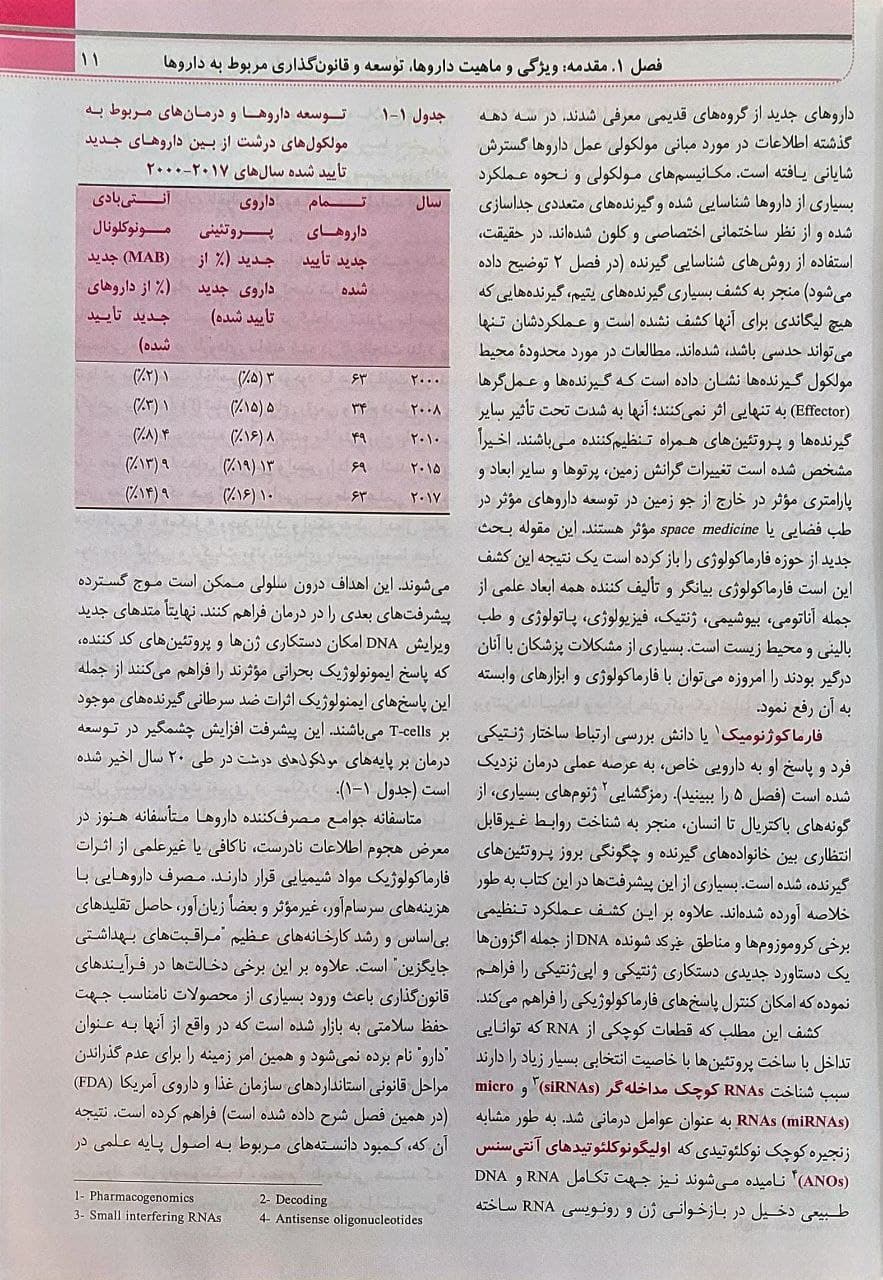 فصل ۱. مقدمه: ویژگی و ماهیت داروها، توسعه و قانون‌گذاری مربوط به داروها ۱۱
داروهای جدید از گروه‌های قدیمی معرفی شدند. در سه دهه
گذشته اطلاعات در مورد مبانی مولکولی عمل داروها گسترش
شایانی یافته است. مکانیسم‌های مولکولی و نحوه عملکرد
بسیاری از داروها شناسایی شده و گیرنده‌های متعددی جداسازی
شده و از نظر ساختمانی اختصاصی و کلون شده‌اند. در حقیقت،
استفاده از روش‌های شناسایی گیرنده (در فصل ۲ توضیح داده
می‌شود) منجر به کشف بسیاری گیرنده‌های یتیم، گیرنده‌هایی که
هیچ لیگاندی برای آنها کشف نشده است و عملکردشان تنها
می‌تواند حدسی باشد، شده‌اند. مطالعات در مورد محدودۀ محیط
مولکول گیرنده‌ها نشان داده است که گیرنده‌ها و عمل‌گرها
(Effector) به تنهایی اثر نمی‌کنند؛ آنها به شدت تحت تأثیر سایر
گیرنده‌ها و پروتئین‌های همراه تنظیم‌کننده می‌باشند. اخیراً
مشخص شده است تغییرات گرانش زمین، پرتوها و سایر ابعاد و
پارامتری مؤثر در خارج از جو زمین در توسعه داروهای مؤثر در
طب فضایی یا space medicine مؤثر هستند. این مقوله بحث
جدید از حوزه فارماکولوژی را باز کرده است یک نتیجه این کشف
این است فارماکولوژی بیانگر و تألیف کننده همه ابعاد علمی از
جمله آناتومی، بیوشیمی، ژنتیک، فیزیولوژی، پاتولوژی و طب
بالینی و محیط زیست است. بسیاری از مشکلات پزشکان با آنان
درگیر بودند را امروزه می‌توان با فارماکولوژی و ابزارهای وابسته
به آن رفع نمود.
فارماکوژنومیک۱ یا دانش بررسی ارتباط ساختار ژنتیکی
فرد و پاسخ او به دارویی خاص، به عرصه عملی درمان نزدیک
شده است (فصل ۵ را ببینید). رمزگشایی۲ ژنوم‌های بسیاری، از
گونه‌های باکتریال تا انسان، منجر به شناخت روابط غیرقابل
انتظاری بین خانواده‌های گیرنده و چگونگی بروز پروتئین‌های
گیرنده، شده است. بسیاری از این پیشرفت‌ها در این کتاب به طور
خلاصه آورده شده‌اند. علاوه بر این کشف عملکرد تنظیمی
برخی کروموزوم‌ها و مناطق غیرکد شونده DNA از جمله اگزون‌ها
یک دستاورد جدیدی دستکاری ژنتیکی و اپی‌ژنتیکی را فراهم
نموده که امکان کنترل پاسخ‌های فارماکولوژیکی را فراهم می‌کند.
کشف این مطلب که قطعات کوچکی از RNA که توانایی
تداخل با ساخت پروتئین‌ها با خاصیت انتخابی بسیار زیاد را دارند
سبب شناخت RNAs کوچک مداخله‌گر (siRNAs)۳ و micro
RNAs (miRNAs) به عنوان عوامل درمانی شد. به طور مشابه
زنجیره کوچک نوکلئوتیدی که اولیگونوکلئوتیدهای آنتی‌سنس
(ANOs)۴ نامیده می‌شوند نیز جهت تکامل RNA و DNA
طبیعی دخیل در بازخوانی ژن و رونویسی RNA ساخته
جدول ۱-۱ توسعه داروها و درمان‌های مربوط به
مولکول‌های درشت از بین داروهای جدید
تأیید شده سال‌های ۲۰۱۷-۲۰۰۰
سال تمام داروی آنتی‌بادی
داروهای پروتئینی مونوکلونال
جدید تأیید جدید (٪ از (MAB) جدید
شده داروی جدید (٪ از داروهای
تأیید شده) جدید تأیید
شده)
۲۰۰۰ ۶۳ ۳ (۵٪) ۱ (۲٪)
۲۰۰۸ ۳۴ ۵ (۱۵٪) ۱ (۳٪)
۲۰۱۰ ۴۹ ۸ (۱۶٪) ۴ (۸٪)
۲۰۱۵ ۶۹ ۱۳ (۱۹٪) ۹ (۱۳٪)
۲۰۱۷ ۶۳ ۱۰ (۱۶٪) ۹ (۱۴٪)
می‌شوند. این اهداف درون سلولی ممکن است موج گسترده
پیشرفت‌های بعدی را در درمان فراهم کنند. نهایتاً متدهای جدید
ویرایش DNA امکان دستکاری ژن‌ها و پروتئین‌های کد کننده،
که پاسخ ایمونولوژیک بحرانی مؤثرند را فراهم می‌کنند از جمله
این پاسخ‌های ایمنولوژیک اثرات ضد سرطانی گیرنده‌های موجود
بر T-cells می‌باشند. این پیشرفت افزایش چشمگیر در توسعه
درمان بر پایه‌های مولکول‌های درشت در طی ۲۰ سال اخیر شده
است (جدول ۱-۱).
متاسفانه جوامع مصرف‌کننده داروها متأسفانه هنوز در
معرض هجوم اطلاعات نادرست، ناکافی یا غیرعلمی از اثرات
فارماکولوژیک مواد شیمیایی قرار دارند. مصرف داروهایی با
هزینه‌های سرسام‌آور، غیرمؤثر و بعضاً زیان‌آور، حاصل تقلیدهای
بی‌اساس و رشد کارخانه‌های عظیم "مراقبت‌های بهداشتی
جایگزین" است. علاوه بر این برخی دخالت‌ها در فرآیندهای
قانون‌گذاری باعث ورود بسیاری از محصولات نامناسب جهت
حفظ سلامتی به بازار شده است که در واقع از آنها به عنوان
"دارو" نام برده نمی‌شود و همین امر زمینه را برای عدم گذراندن
مراحل قانونی استانداردهای سازمان غذا و داروی آمریکا (FDA)
(در همین فصل شرح داده شده است) فراهم کرده است. نتیجه
آن که، کمبود دانسته‌های مربوط به اصول پایه علمی در
1- Pharmacogenomics 2- Decoding
3- Small interfering RNAs 4- Antisense oligonucleotides